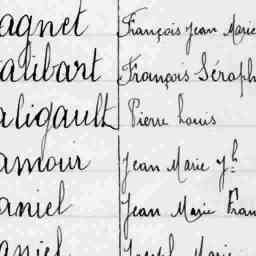 agnet François Jean Marie
alibart François Séraph
aligault Pierre Louis
amour Jean Marie Jh
aniel Jean Marie Fran
aniel Joseph Marie